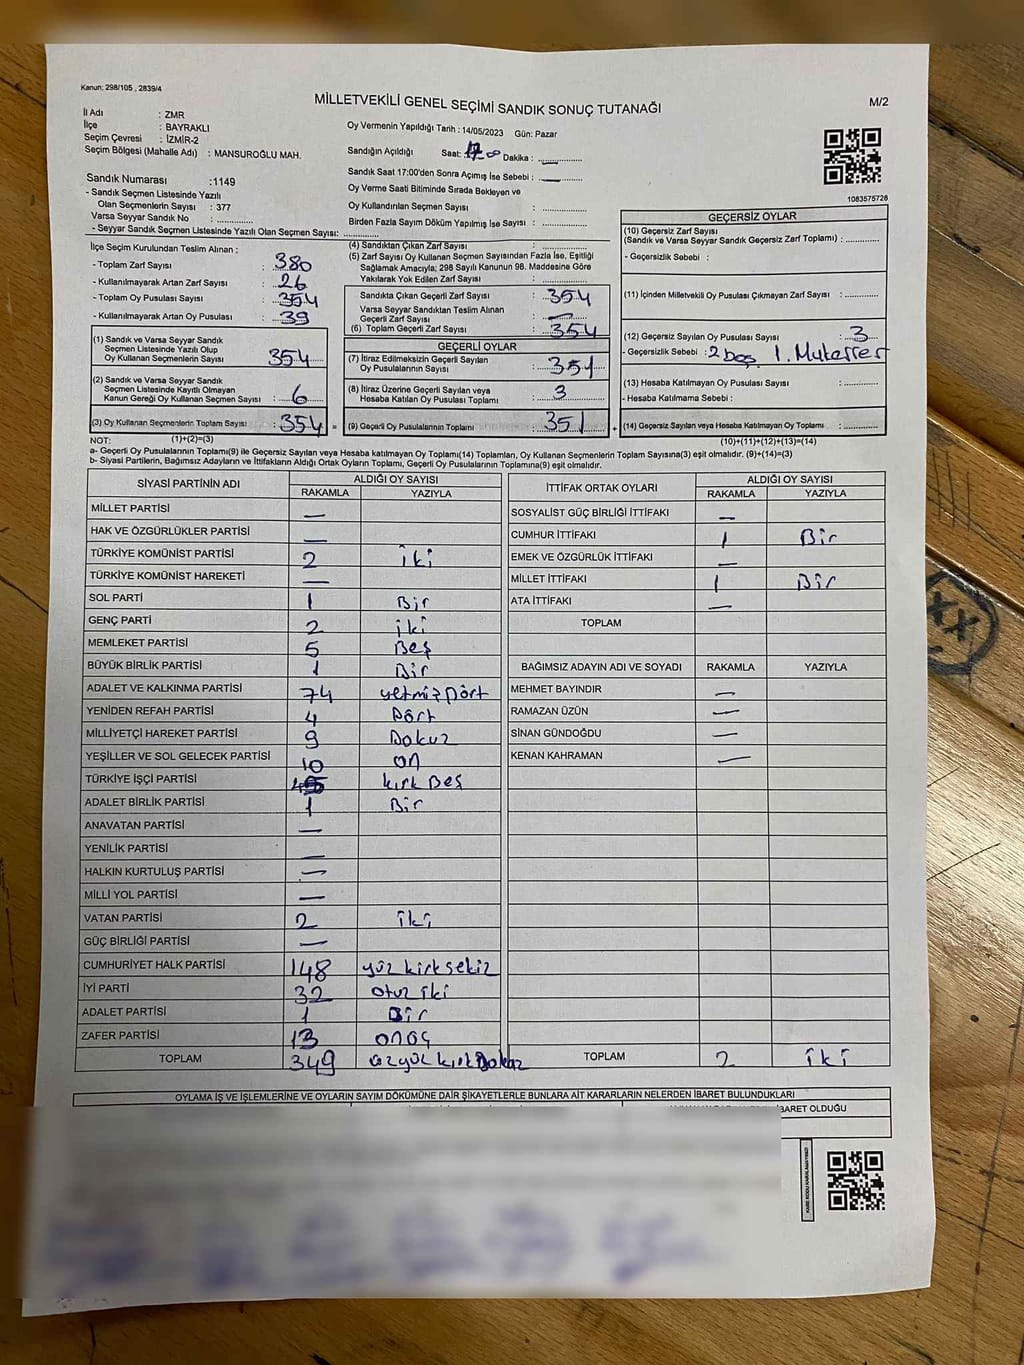 Kanun: 298/105 , 2839/4
MİLLETVEKİLİ GENEL SEÇİMİ SANDIK SONUÇ TUTANAĞI
M/2
İl Adı : ZMR
İlçe : BAYRAKLI
Seçim Çevresi : İZMİR-2
Seçim Bölgesi (Mahalle Adı) : MANSUROĞLU MAH.
Sandık Numarası :1149
- Sandık Seçmen Listesinde Yazılı
Olan Seçmenlerin Sayısı : 377
Varsa Seyyar Sandık No : ............
- Seyyar Sandık Seçmen Listesinde Yazılı Olan Seçmen Sayısı: ............
Oy Vermenin Yapıldığı Tarih : 14/05/2023 Gün: Pazar
Sandığın Açıldığı Saat: Dakika :
Sandık Saat 17:00'den Sonra Açımış İse Sebebi :
Oy Verme Saati Bitiminde Sırada Bekleyen ve
Oy Kullandırılan Seçmen Sayısı :
Birden Fazla Sayım Döküm Yapılmış İse Sayısı :
1083575728
İlçe Seçim Kurulundan Teslim Alınan ;
- Toplam Zarf Sayısı : 380
- Kullanılmayarak Artan Zarf Sayısı : 26
- Toplam Oy Pusulası Sayısı : 354
- Kullanılmayarak Artan Oy Pusulası : 39
(1) Sandık ve Varsa Seyyar Sandık
Seçmen Listesinde Yazılı Olup
Oy Kullanan Seçmenlerin Sayısı : 354
(2) Sandık ve Varsa Seyyar Sandık
Seçmen Listesinde Kayıtlı Olmayan
Kanun Gereği Oy Kullanan Seçmen Sayısı : 6
(3) Oy Kullanan Seçmenlerin Toplam Sayısı : 354 =
(4) Sandıktan Çıkan Zarf Sayısı :
(5) Zarf Sayısı Oy Kullanan Seçmen Sayısından Fazla İse, Eşitliği
Sağlamak Amacıyla; 298 Sayılı Kanunun 98. Maddesine Göre
Yakılarak Yok Edilen Zarf Sayısı :
Sandıkta Çıkan Geçerli Zarf Sayısı : 354
Varsa Seyyar Sandıktan Teslim Alınan
Geçerli Zarf Sayısı : —
(6) Toplam Geçerli Zarf Sayısı : 354
GEÇERLİ OYLAR
(7) İtiraz Edilmeksizin Geçerli Sayılan
Oy Pusulalarının Sayısı : 351
(8) İtiraz Üzerine Geçerli Sayılan veya
Hesaba Katılan Oy Pusulası Toplamı : 3
(9) Geçerli Oy Pusulalarının Toplamı : 351 +
GEÇERSİZ OYLAR
(10) Geçersiz Zarf Sayısı
(Sandık ve Varsa Seyyar Sandık Geçersiz Zarf Toplamı) :
- Geçersizlik Sebebi :
(11) İçinden Milletvekili Oy Pusulası Çıkmayan Zarf Sayısı :
(12) Geçersiz Sayılan Oy Pusulası Sayısı : 3
- Geçersizlik Sebebi : 2 boş 1. Mukerrer
(13) Hesaba Katılmayan Oy Pusulası Sayısı :
- Hesaba Katılmama Sebebi :
(14) Geçersiz Sayılan veya Hesaba Katılmayan Oy Toplamı :
NOT: (1)+(2)=(3)
(10)+(11)+(12)+(13)=(14)
a- Geçerli Oy Pusulalarının Toplamı(9) ile Geçersiz Sayılan veya Hesaba Katılmayan Oy Toplamı(14) Toplamları, Oy Kullanan Seçmenlerin Toplam Sayısına(3) eşit olmalıdır. (9)+(14)=(3)
b- Siyasi Partilerin, Bağımsız Adayların ve İttifakların Aldığı Ortak Oyların Toplamı, Geçerli Oy Pusulalarının Toplamına(9) eşit olmalıdır.
SİYASİ PARTİNİN ADI ALDIĞI OY SAYISI
RAKAMLA YAZIYLA
MİLLET PARTİSİ —
HAK VE ÖZGÜRLÜKLER PARTİSİ —
TÜRKİYE KOMÜNİST PARTİSİ 2 iki
TÜRKİYE KOMÜNİST HAREKETİ —
SOL PARTİ 1 Bir
GENÇ PARTİ 2 iki
MEMLEKET PARTİSİ 5 Beş
BÜYÜK BİRLİK PARTİSİ 1 Bir
ADALET VE KALKINMA PARTİSİ 74 yetmiş Dört
YENİDEN REFAH PARTİSİ 4 Dört
MİLLİYETÇİ HAREKET PARTİSİ 9 Dokuz
YEŞİLLER VE SOL GELECEK PARTİSİ 10 on
TÜRKİYE İŞÇİ PARTİSİ 45 kırk Beş
ADALET BİRLİK PARTİSİ 1 Bir
ANAVATAN PARTİSİ —
YENİLİK PARTİSİ —
HALKIN KURTULUŞ PARTİSİ —
MİLLİ YOL PARTİSİ —
VATAN PARTİSİ 2 iki
GÜÇ BİRLİĞİ PARTİSİ —
CUMHURİYET HALK PARTİSİ 148 yüz kırk sekiz
İYİ PARTİ 32 otuz iki
ADALET PARTİSİ 1 Bir
ZAFER PARTİSİ 13 onüç
TOPLAM 349 üzyüz kırk Dokuz
İTTİFAK ORTAK OYLARI ALDIĞI OY SAYISI
RAKAMLA YAZIYLA
SOSYALİST GÜÇ BİRLİĞİ İTTİFAKI —
CUMHUR İTTİFAKI 1 Bir
EMEK VE ÖZGÜRLÜK İTTİFAKI —
MİLLET İTTİFAKI 1 Bir
ATA İTTİFAKI —
TOPLAM
BAĞIMSIZ ADAYIN ADI VE SOYADI RAKAMLA YAZIYLA
MEHMET BAYINDIR —
RAMAZAN ÜZÜN —
SİNAN GÜNDOĞDU —
KENAN KAHRAMAN —
TOPLAM 2 iki
OYLAMA İŞ VE İŞLEMLERİNE VE OYLARIN SAYIM DÖKÜMÜNE DAİR ŞİKAYETLERLE BUNLARA AİT KARARLARIN NELERDEN İBARET BULUNDUKLARI
İBARET OLDUĞU
XX